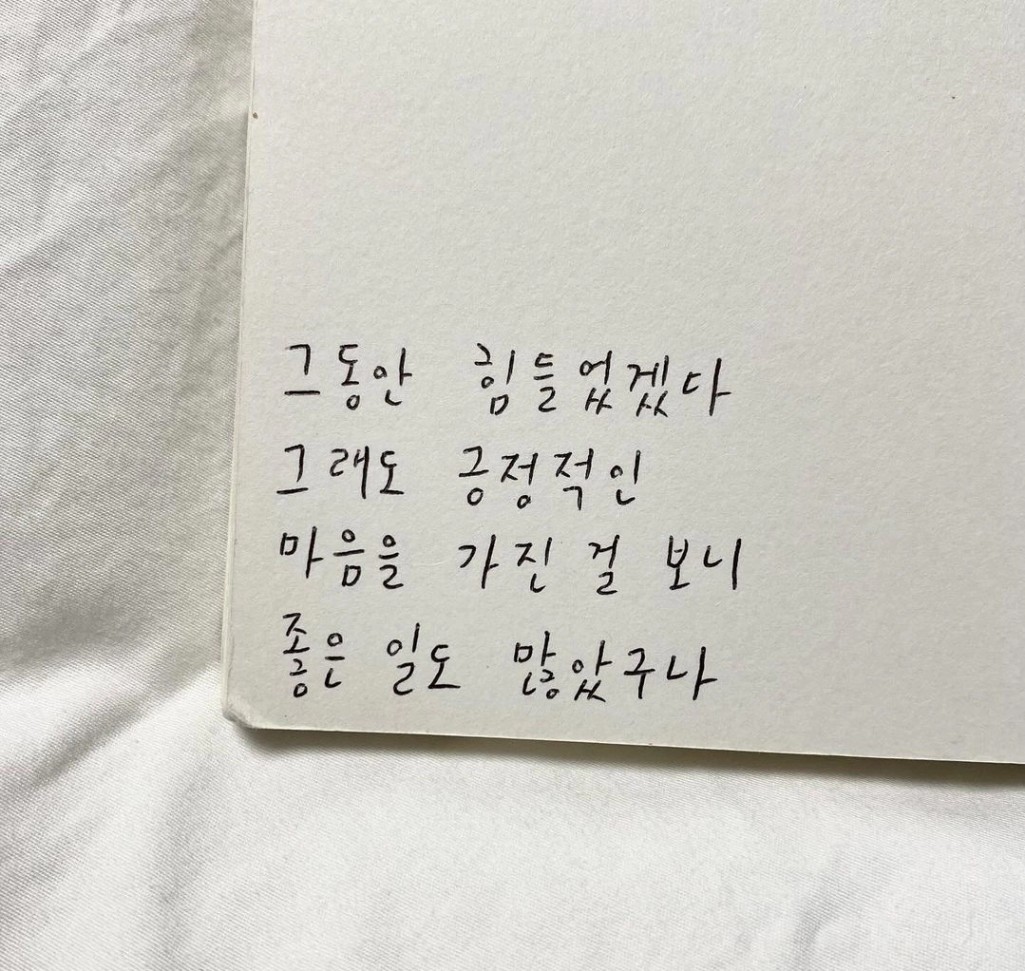 그동안 힘들었겠다
그래도 긍정적인
마음을 가진 걸 보니
좋은 일도 많았구나